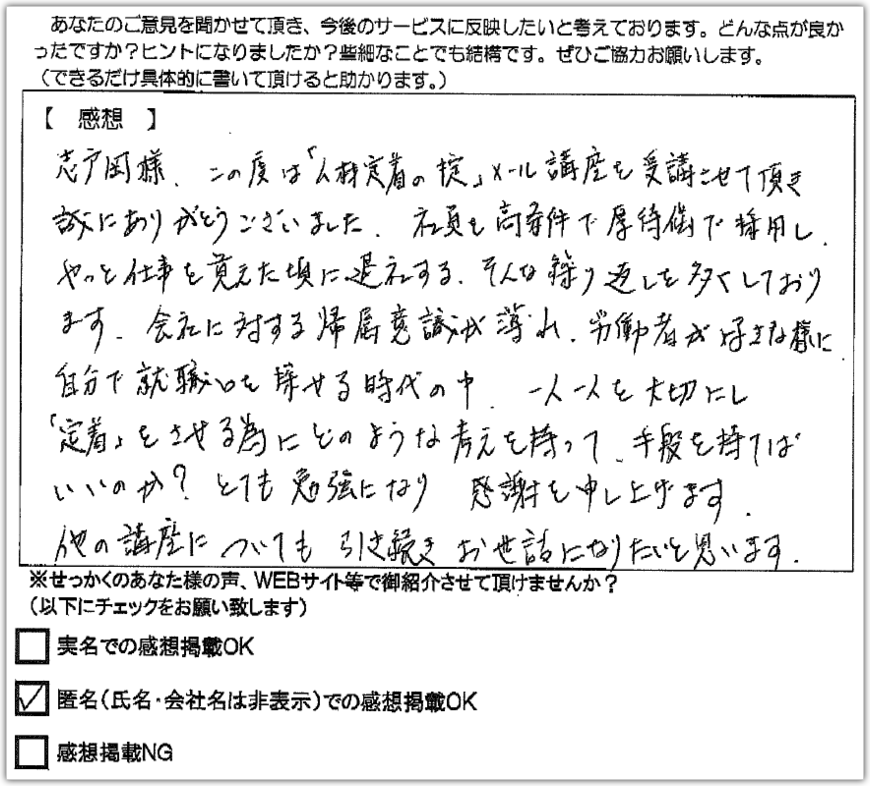 あなたのご意見を聞かせて頂き、今後のサービスに反映したいと考えております。どんな点が良か
ったですか？ヒントになりましたか？些細なことでも結構です。ぜひご協力お願いします。
（できるだけ具体的に書いて頂けると助かります。）
【 感想 】
志戸岡様、この度は「人材定着の掟」メール講座を受講させて頂き
誠にありがとうございました。社員を高条件で厚待偶で採用し、
やっと仕事を覚えた頃に退社する、そんな繰り返しを多くしており
ます。会社に対する帰属意識が薄れ、労働者が好きな様に
自分で就職口を探せる時代の中、一人一人を大切にし
「定着」をさせる為にどのような考えを持って、手段を持てば
いいのか？とても勉強になり 感謝を申し上げます。
他の講座についても引き続きお世話になりたいと思います。
※せっかくのあなた様の声、WEBサイト等で御紹介させて頂けませんか？
（以下にチェックをお願い致します）
実名での感想掲載OK
✓ 匿名（氏名・会社名は非表示）での感想掲載OK
感想掲載NG